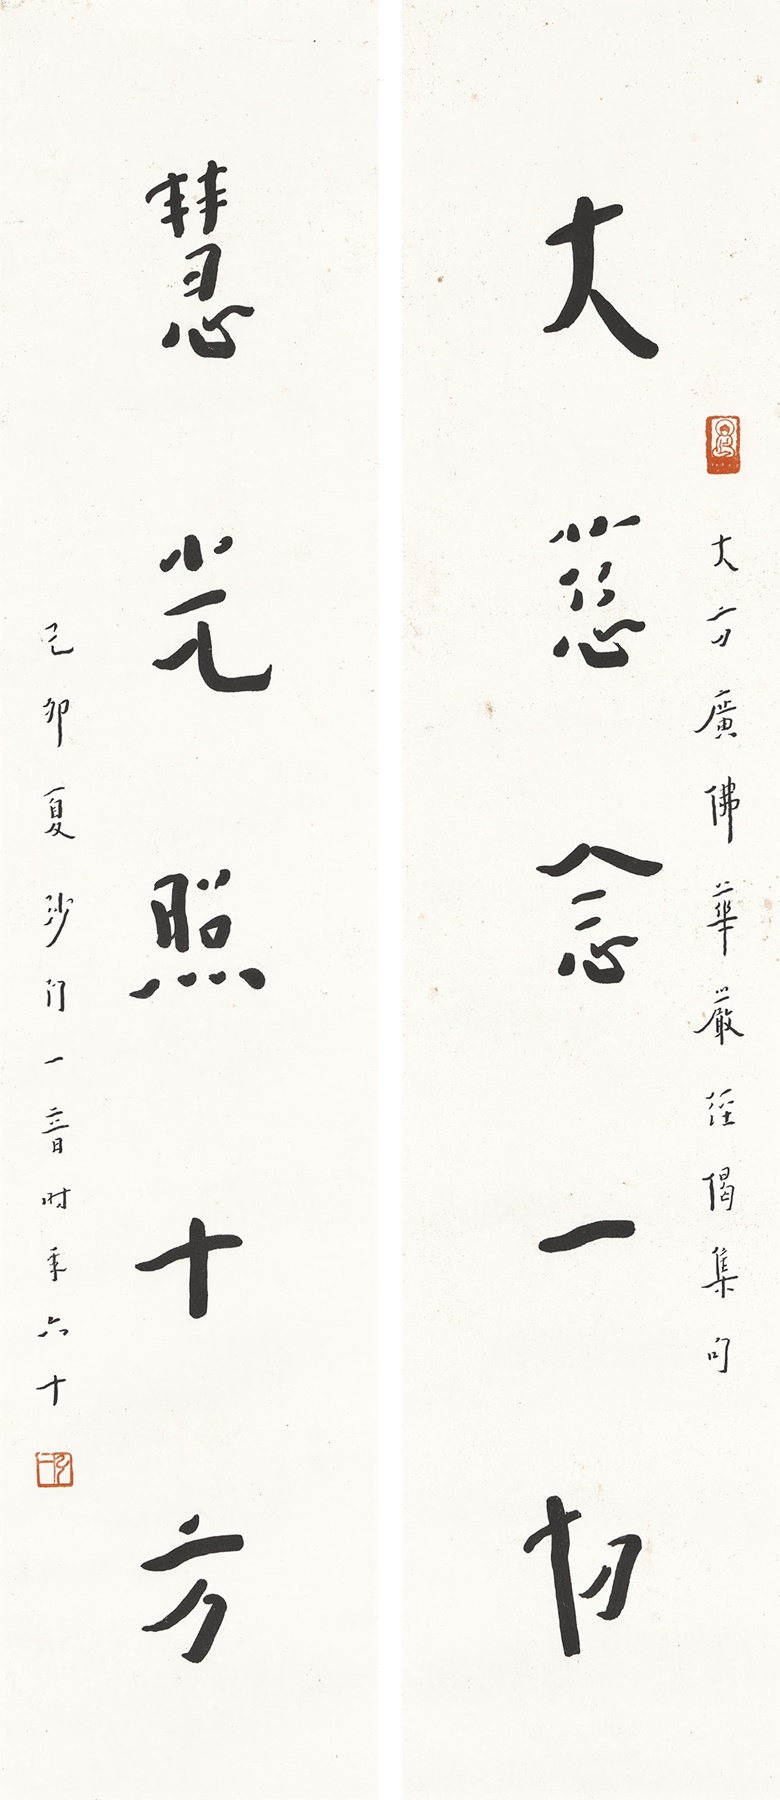 大方廣佛華嚴經偈集句
大慈念一切
慧光照十方
己卯夏沙门一音时年六十